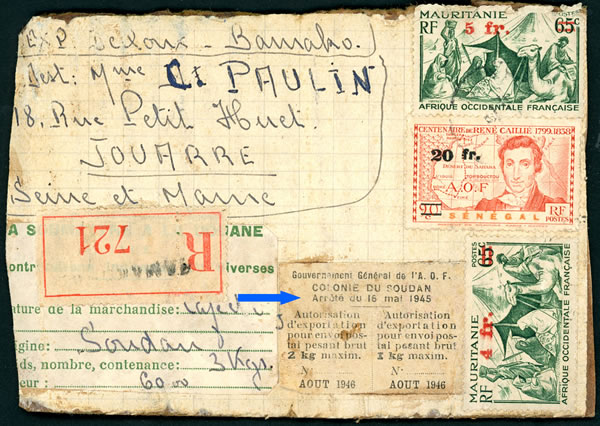 EXP. Deroux - Bamako.
Dest: Mme Ct PAULIN
18, Rue Petit Huet.
JOUARRE
Seine et Marne
MAURITANIE
RF 5 fr. 65c
AFRIQUE OCCIDENTALE FRANÇAISE
CENTENAIRE DE RENÉ CAILLIÉ 1799.1838
20 fr.
A.O.F
90c RF
SÉNÉGAL POSTES
MAURITANIE
RF 4 fr. 65c
POSTES
AFRIQUE OCCIDENTALE FRANÇAISE
R
721
ANE
iverses
ature de la marchandise:
igine: Soudan
ds, nombre, contenance: 3 Kgs.
eur: 60.00
Gouvernement Général de l'A. O. F.
COLONIE DU SOUDAN
Arrêté du 16 mai 1945
Autorisation
d'exportation
pour envoi pos-
tal pesant brut
2 kg maxim.
N°
AOUT 1946
Autorisation
d'exportation
pour envoi pos-
tal pesant brut
1 kg maxim.
N°
AOUT 1946